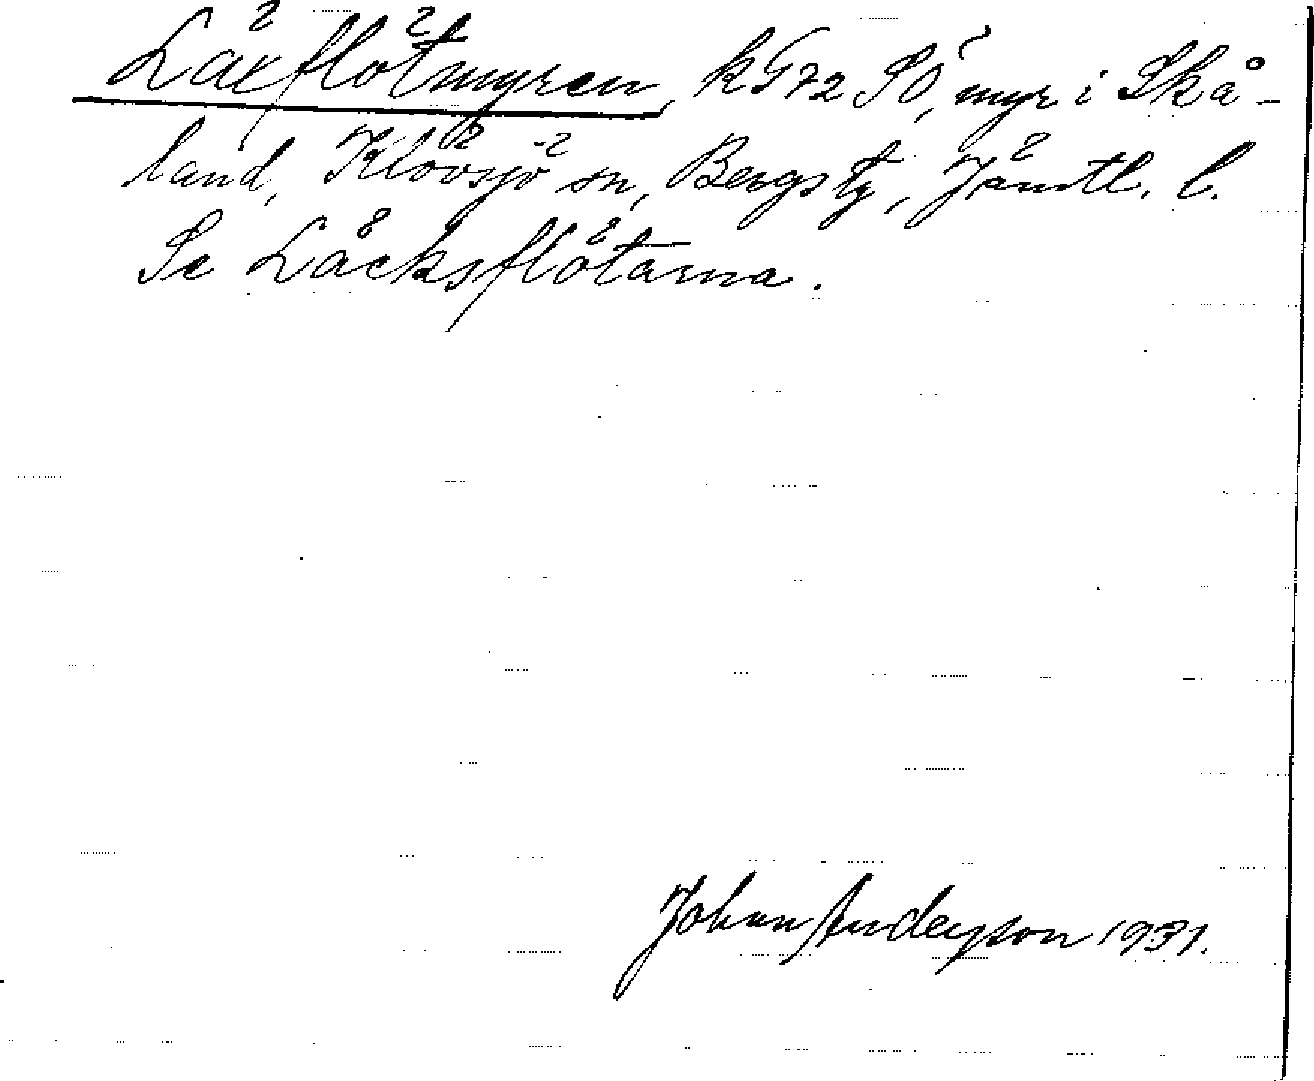 Läxflötmyren, kG72 SÖ, myr i Skå-
land, Klövsjö sn, Bergs tg, Jämtl. l.
Se Läcksflötarna.
Johan Anderson 1931.